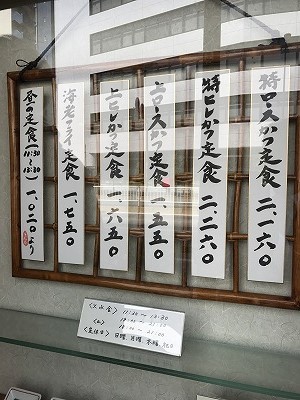 特ロースかつ定食 二、一六〇
特ヒレかつ定食 二、二六〇
上ロースかつ定食 一、五五〇
上ヒレかつ定食 一、六五〇
海老フライ定食 一、七五〇
昼の定食 11:30〜13:30 一、〇二〇より
〈火水金〉 11:30〜13:30
〈土〉
〈定休日〉 日曜、月曜、木曜、祝日